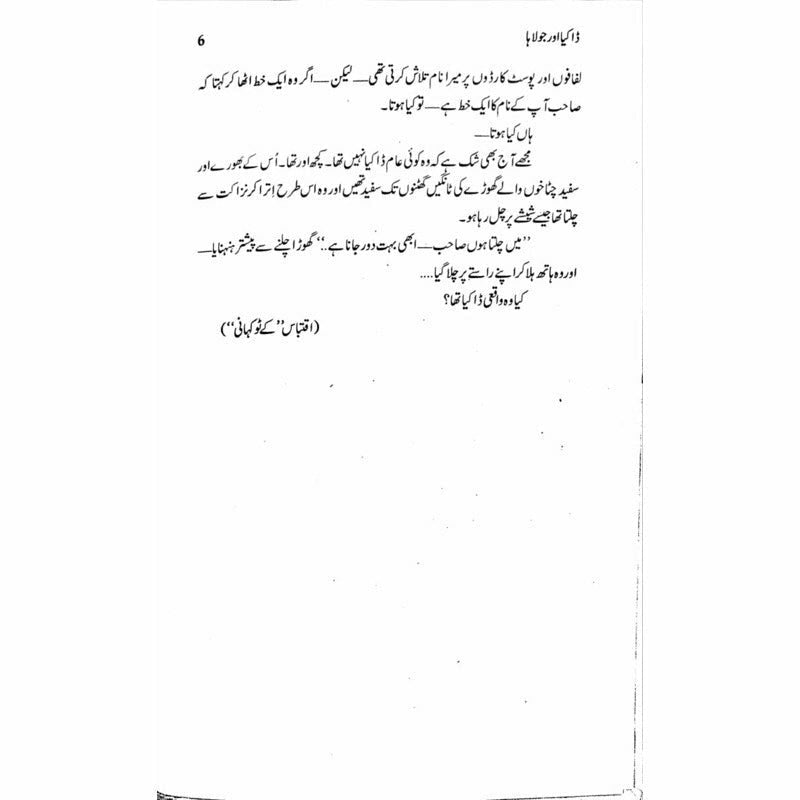 ڈاکیا اور جولاہا 6
لفافوں اور پوسٹ کارڈوں پر میرا نام تلاش کرتی تھی — لیکن — اگر وہ ایک خط اٹھا کر کہتا کہ
صاحب آپ کے نام کا ایک خط ہے — تو کیا ہوتا۔
ہاں کیا ہوتا —
مجھے آج بھی شک ہے کہ وہ کوئی عام ڈاکیا نہیں تھا۔ کچھ اور تھا۔ اُس کے بھورے اور
سفید چٹاخوں والے گھوڑے کی ٹانگیں گھٹنوں تک سفید تھیں اور وہ اس طرح اِترا کر نزاکت سے
چلتا تھا جیسے شیشے پر چل رہا ہو۔
”میں چلتا ہوں صاحب — ابھی بہت دور جانا ہے..“ گھوڑا چلنے سے پیشتر ہنہنایا —
اور وہ ہاتھ ہلا کر اپنے راستے پر چلا گیا....
کیا وہ واقعی ڈاکیا تھا؟
(اقتباس ”کے ٹو کہانی“)